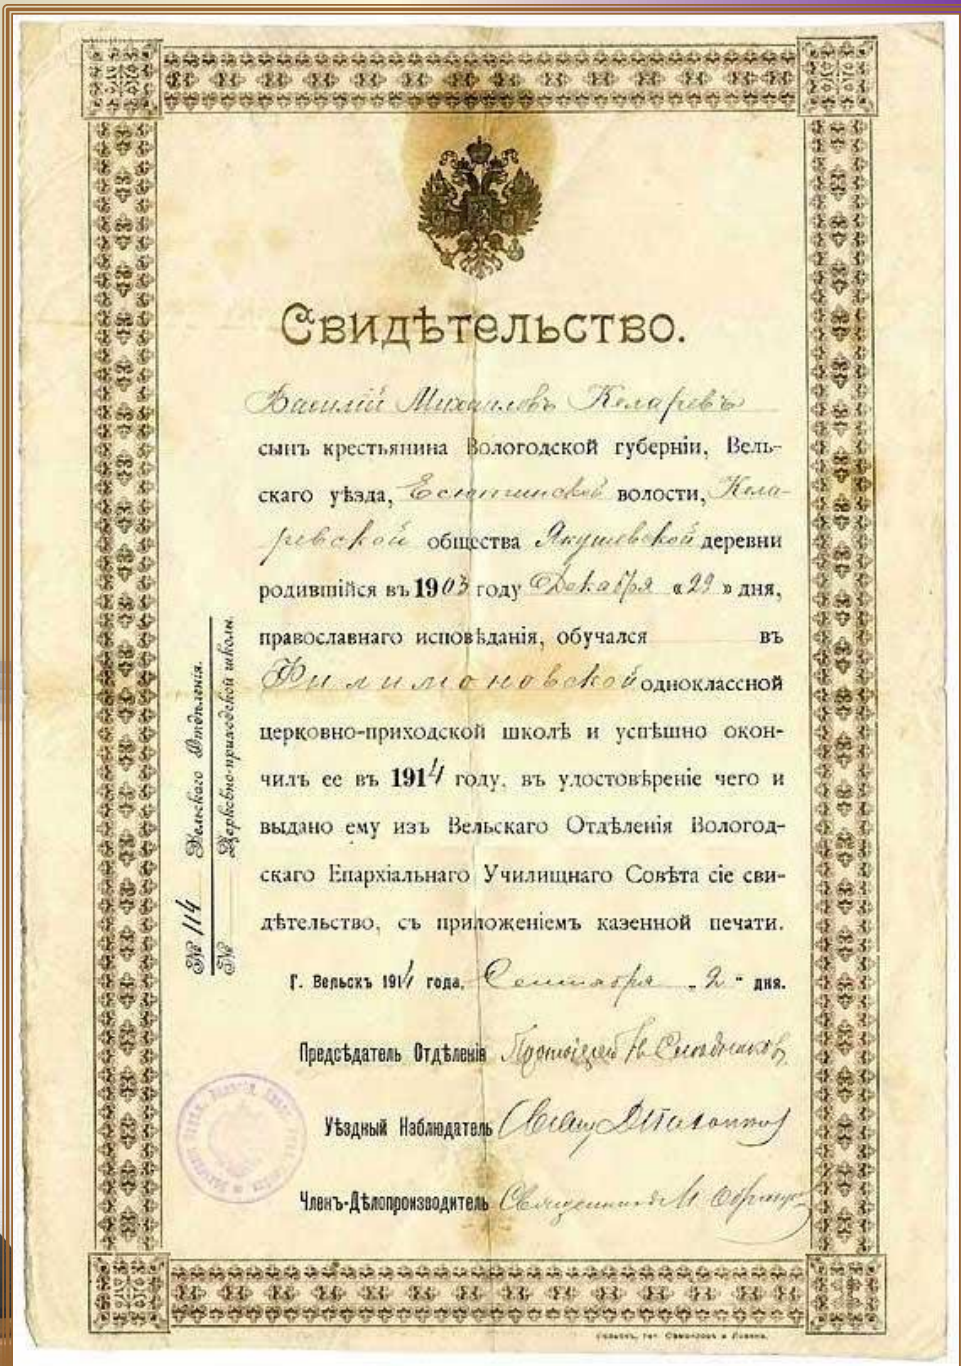 Свидѣтельство.
Василій Михаиловъ Келаревъ
сынъ крестьянина Вологодской губерніи, Вель-
скаго уѣзда, Есютинской волости, Кела-
ревской общества Якушевской деревни
родившійся въ 1903 году Декабря «29» дня,
православнаго исповѣданія, обучался въ
Филимоновской одноклассной
церковно-приходской школѣ и успѣшно окон-
чилъ ее въ 1914 году, въ удостовѣреніе чего и
выдано ему изъ Вельскаго Отдѣленія Вологод-
скаго Епархіальнаго Училищнаго Совѣта сіе сви-
дѣтельство, съ приложеніемъ казенной печати.
Г. Вельскъ 1914 года, Сентября „2" дня.
Предсѣдатель Отдѣленія Протоіерей
Уѣздный Наблюдатель
Членъ-Дѣлопроизводитель Священникъ
№ 114 Вельскаго Отдѣленія.
№ Церковно-приходской школы.